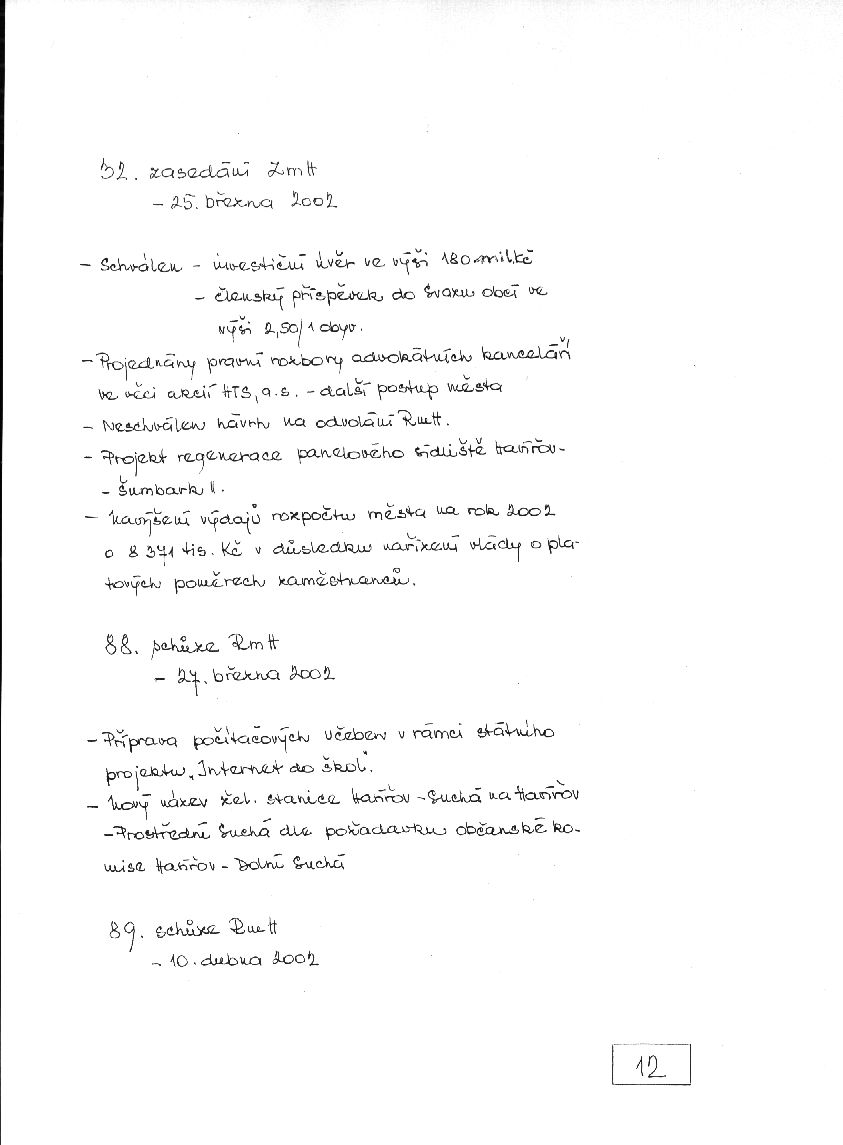 32. zasedání ZmH
- 25. března 2002
- Schválen - investiční úvěr ve výši 180 mil. Kč
- členský příspěvek do Svazu obcí ve
výši 2,50/1 obyv.
- Projednány pravní rozbory advokátních kanceláří
ve věci akcií HTS, a.s. - další postup města
- Neschválen návrh na odvolání RmH.
- Projekt regenerace panelového sídliště Havířov-
- Šumbark II.
- Navýšení výdajů rozpočtu města na rok 2002
o 8 371 tis. Kč v důsledku nařízení vlády o pla-
tových poměrech zaměstnanců.
88. schůze RmH
- 27. března 2002
- Příprava počítačových učeben v rámci státního
projektu „Internet do škol".
- Nový název žel. stanice Havířov - Suchá na Havířov
- Prostřední Suchá dle požadavku občanské ko-
mise Havířov - Dolní Suchá
89. schůze RmH
- 10. dubna 2002
12